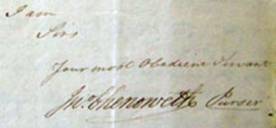 I am
Sirs
Your most Obedient Servant
Jno Chenoweth Purser